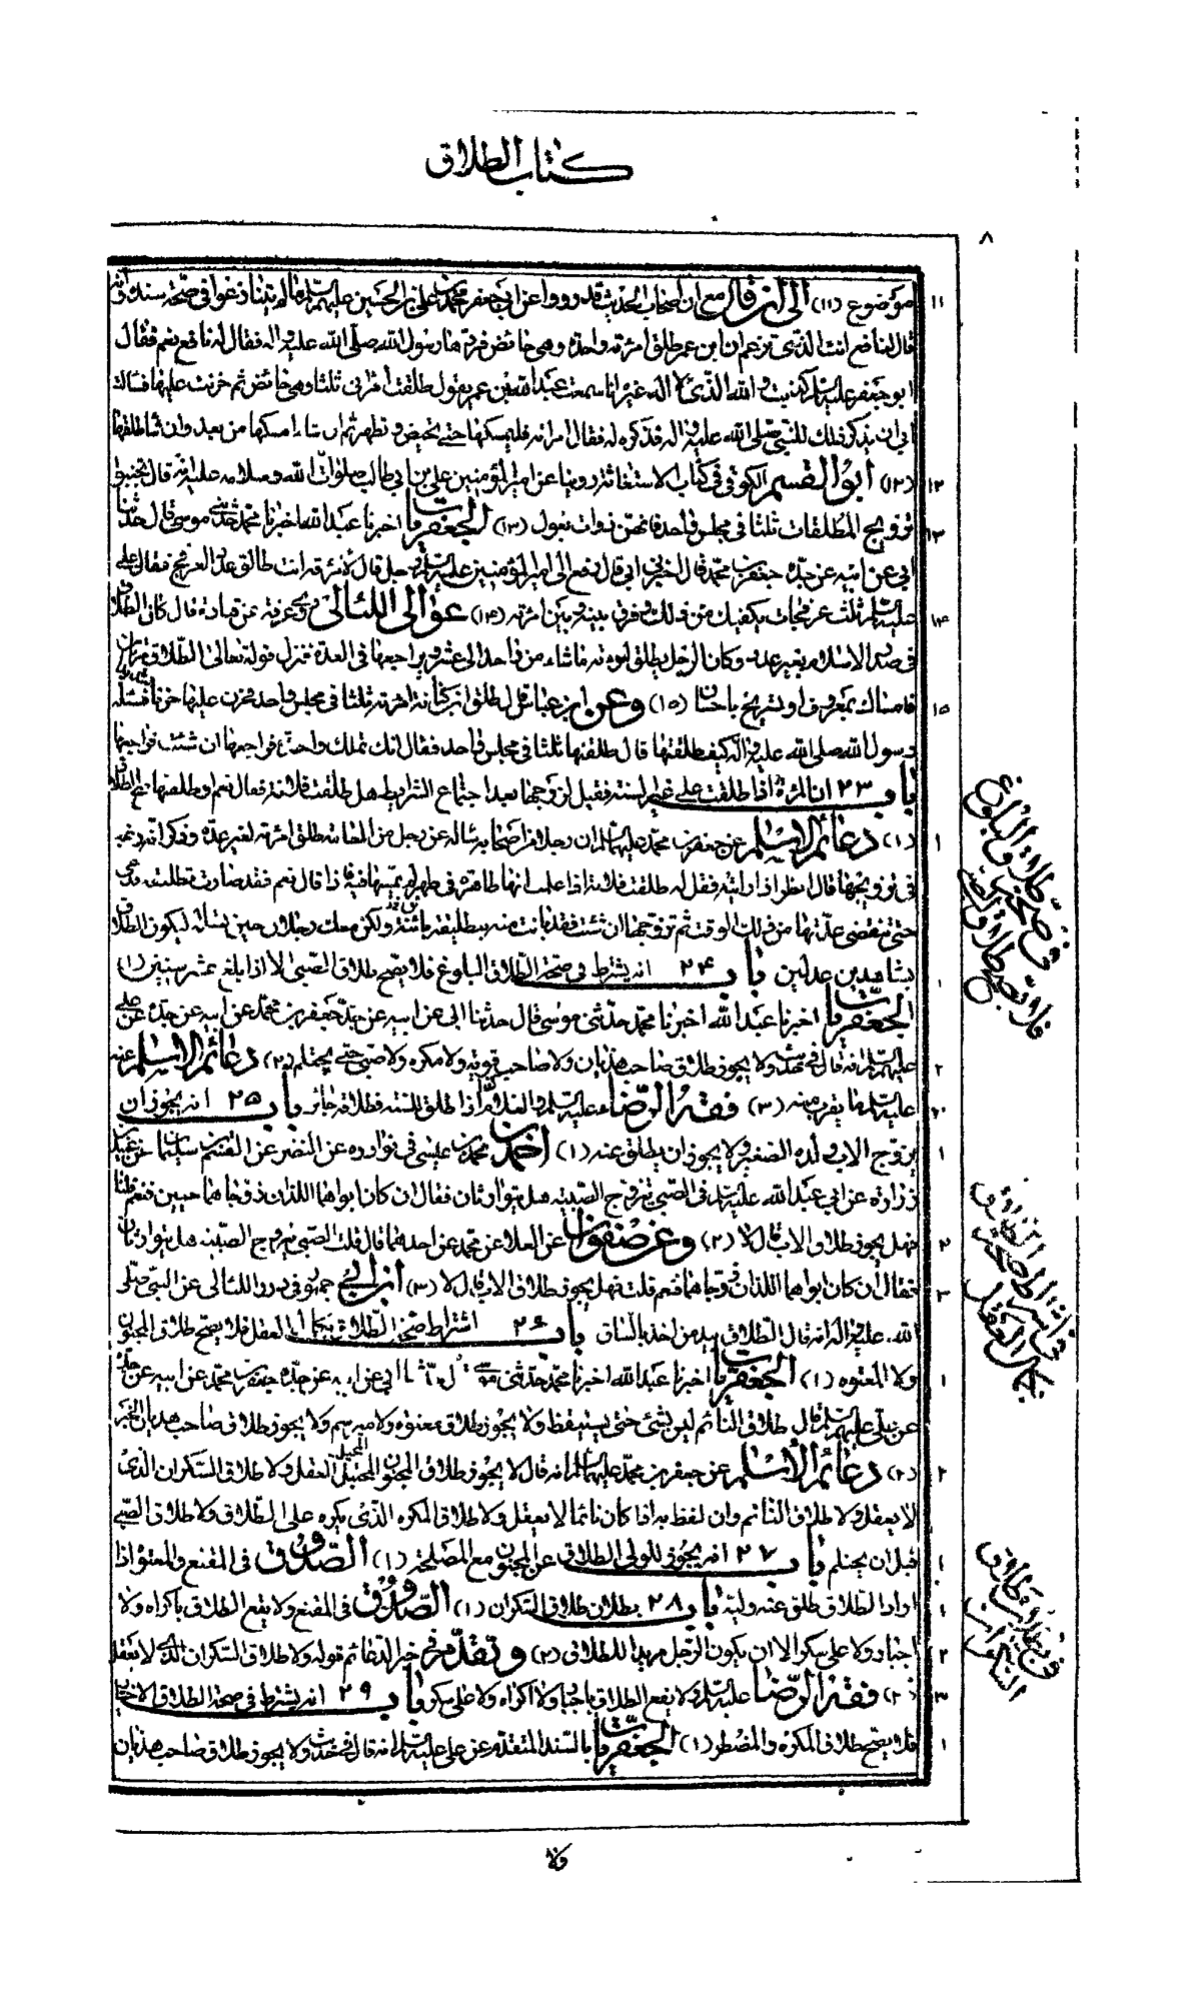 كتاب الطلاق
٨
موضوع (١١) إلى أن قال مع ان اصحاب الحديث قد رووا عن ابي جعفر محمد بن علي بن الحسين عليهم السلام
قال لنافع انت الذي تزعم ان ابن عمر طلق امرئته واحدة وهي حائض فردها رسول الله صلى الله عليه واله فقال له نافع نعم فقال
ابو جعفر عليه السلام كذبت والله الذي لا اله غيره انا سمعت عبد الله بن عمر يقول طلقت امرأتي ثلثا وهي حائض ثم حزنت عليها فسالت
ابي ان يذكر ذلك للنبي صلى الله عليه واله فذكره له فقال امرئته فليمسكها حتى تحيض وتطهر ثم ان شاء امسكها من بعد وان شاء طلقها
(١٢) أبو القسم الكوفي في كتاب الاستغاثة روينا عن امير المؤمنين علي بن ابي طالب صلوات الله وسلامه عليه انه قال تجنبوا
تزويج المطلقات ثلثا في مجلس واحد فانهن ذوات بعول (١٣) الجعفريات اخبرنا عبد الله اخبرنا محمد حدثني موسى قال حدثنا
ابي عن ابيه عن جده جعفر بن محمد قال اخبرني ابي قال رفع الى امير المؤمنين عليه السلام رجل قال لامرئته انت طالق عدد العرفج فقال علي
عليه السلام ثلث عرفجات يكفيك من ذلك وفرق بينه وبين امرئته (١٤) عوالي اللئالي عروة عن قتادة قال كان الطلاق
في صدر الاسلام بغير عدد وكان الرجل يطلق امرئته ما شاء من واحد الى عشر ويراجعها في العدة فنزل قوله تعالى الطلاق مرتان
فامساك بمعروف او تسريح باحسان (١٥) وعن ابن عباس قال طلق ابن كنانة امرئته ثلثا في مجلس واحد فحزن عليها حزنا فسئله
رسول الله صلى الله عليه واله كيف طلقتها قال طلقتها ثلثا في مجلس واحد فقال انك تملك واحدة فراجعها ان شئت فراجعها
باب ٢٣ ان المرئة اذا طلقت على غير السنة فقيل لزوجها بعد اجتماع الشرايط هل طلقت فلانة فقال نعم او طلقتها صح الطلاق
(١) دعائم الإسلام عن جعفر بن محمد عليهما السلام ان رجلا من اصحابه سأله عن رجل من العامة طلق امرئته لغير عدة وذكر انه رغب
في تزويجها قال انظر اذا رايته فقل له طلقت فلانة اذا علمت انها طاهرة في طهر لم يمسها فيه فاذا قال نعم فقد صارت تطليقة فدعها
حتى تنقضي عدتها من ذلك الوقت ثم تزوجها ان شئت فقد بانت منه بتطليقة بائنة وليكن معك رجلان حين تسأله ليكون الطلاق
بشاهدين عدلين باب ٢٤ انه يشترط في صحة الطلاق البلوغ فلا يصح طلاق الصبي الا اذا بلغ عشر سنين (١)
الجعفريات اخبرنا عبد الله اخبرنا محمد حدثني موسى قال حدثنا ابي عن ابيه عن جده جعفر بن محمد عن ابيه عن جده عن علي
عليهم السلام انه قال في حديث ولا يجوز طلاق صاحب هذيان ولا صاحب ولا مكره ولا صبي حتى يحتلم (٢) دعائم الإسلام عنه
عليه السلام ما يقرب منه (٣) فقه الرضا عليه السلام والغلام اذا طلق للسنة فطلاقه جائز باب ٢٥ انه يجوز ان
يزوج الاب ولده الصغير ولا يجوز ان يطلق عنه (١) احمد بن محمد بن عيسى في نوادره عن النضر عن القسم بن سليمان عن عبيد
بن زرارة عن ابي عبد الله عليه السلام في الصبي يتزوج الصبية هل يتوارثان فقال ان كان ابواهما اللذان زوجاهما حيين فنعم قلنا
فهل يجوز طلاق الاب قال لا (٢) وعن صفوان عن العلا عن محمد عن احدهما قال قلت الصبي يتزوج الصبية هل يتوارثان
فقال ان كان ابواهما اللذان زوجاهما فنعم قلت فهل يجوز طلاق الاب قال لا (٣) ابن أبي جمهور في درر اللئالي عن النبي صلى
الله عليه واله انه قال الطلاق بيد من اخذ بالساق باب ٢٦ اشتراط صحة الطلاق بكمال العقل فلا يصح طلاق المجنون
ولا المعتوه (١) الجعفريات اخبرنا عبد الله اخبرنا محمد حدثني موسى قال حدثنا ابي عن ابيه عن جده جعفر بن محمد عن ابيه عن جده
عن علي عليهم السلام قال طلاق النائم ليس بشئ حتى يستيقظ ولا يجوز طلاق معتوه ولا مبرسم ولا يجوز طلاق صاحب هذيان الخبر
(٢) دعائم الإسلام عن جعفر بن محمد عليهما السلام انه قال لا يجوز طلاق المجنون المختبل العقل ولا طلاق السكران الذي
لا يعقل ولا طلاق النائم وان لفظ به اذا كان نائما لا يعقل ولا طلاق المكره الذي يكره على الطلاق ولا طلاق الصبي
قبل ان يحتلم باب ٢٧ انه يجوز للولي الطلاق عن المجنون مع المصلحة (١) الصدوق في المقنع والمعتوه اذا
اراد الطلاق طلق عنه وليه باب ٢٨ بطلان طلاق السكران (١) الصدوق في المقنع ولا يقع الطلاق باكراه ولا
اجبار ولا على سكر الا ان يكون الرجل مريدا للطلاق (٢) وتقدم خبر الدعائم قوله ولا طلاق السكران الذي لا يعقل
(٣) فقه الرضا عليه السلام ولا يقع الطلاق باجبار ولا اكراه ولا على سكر باب ٢٩ انه يشترط في صحة الطلاق الاختيار
فلا يصح طلاق المكره والمضطر (١) الجعفريات بالسند المتقدم عن علي عليه السلام انه قال في حديث ولا يجوز طلاق صاحب هذيان
ولا